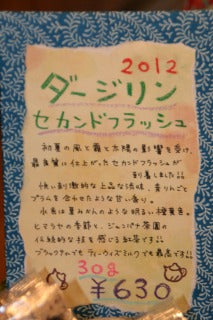 2012
ダージリン
セカンドフラッシュ
初夏の風と霧と太陽の影響を受け、
最良質に仕上がったセカンドフラッシュが
到着しました!!
快い刺激的な上品な渋味、青りんごと
プラムを合わせたような甘い香り。
水色は夏みかんのような明るい橙黄色。
ヒマラヤの季節と、ジュンパナ茶園の
伝統的な技を感じる紅茶です!!
ブラックティでもティーウィズミルクでも最高です!!
30g
¥630